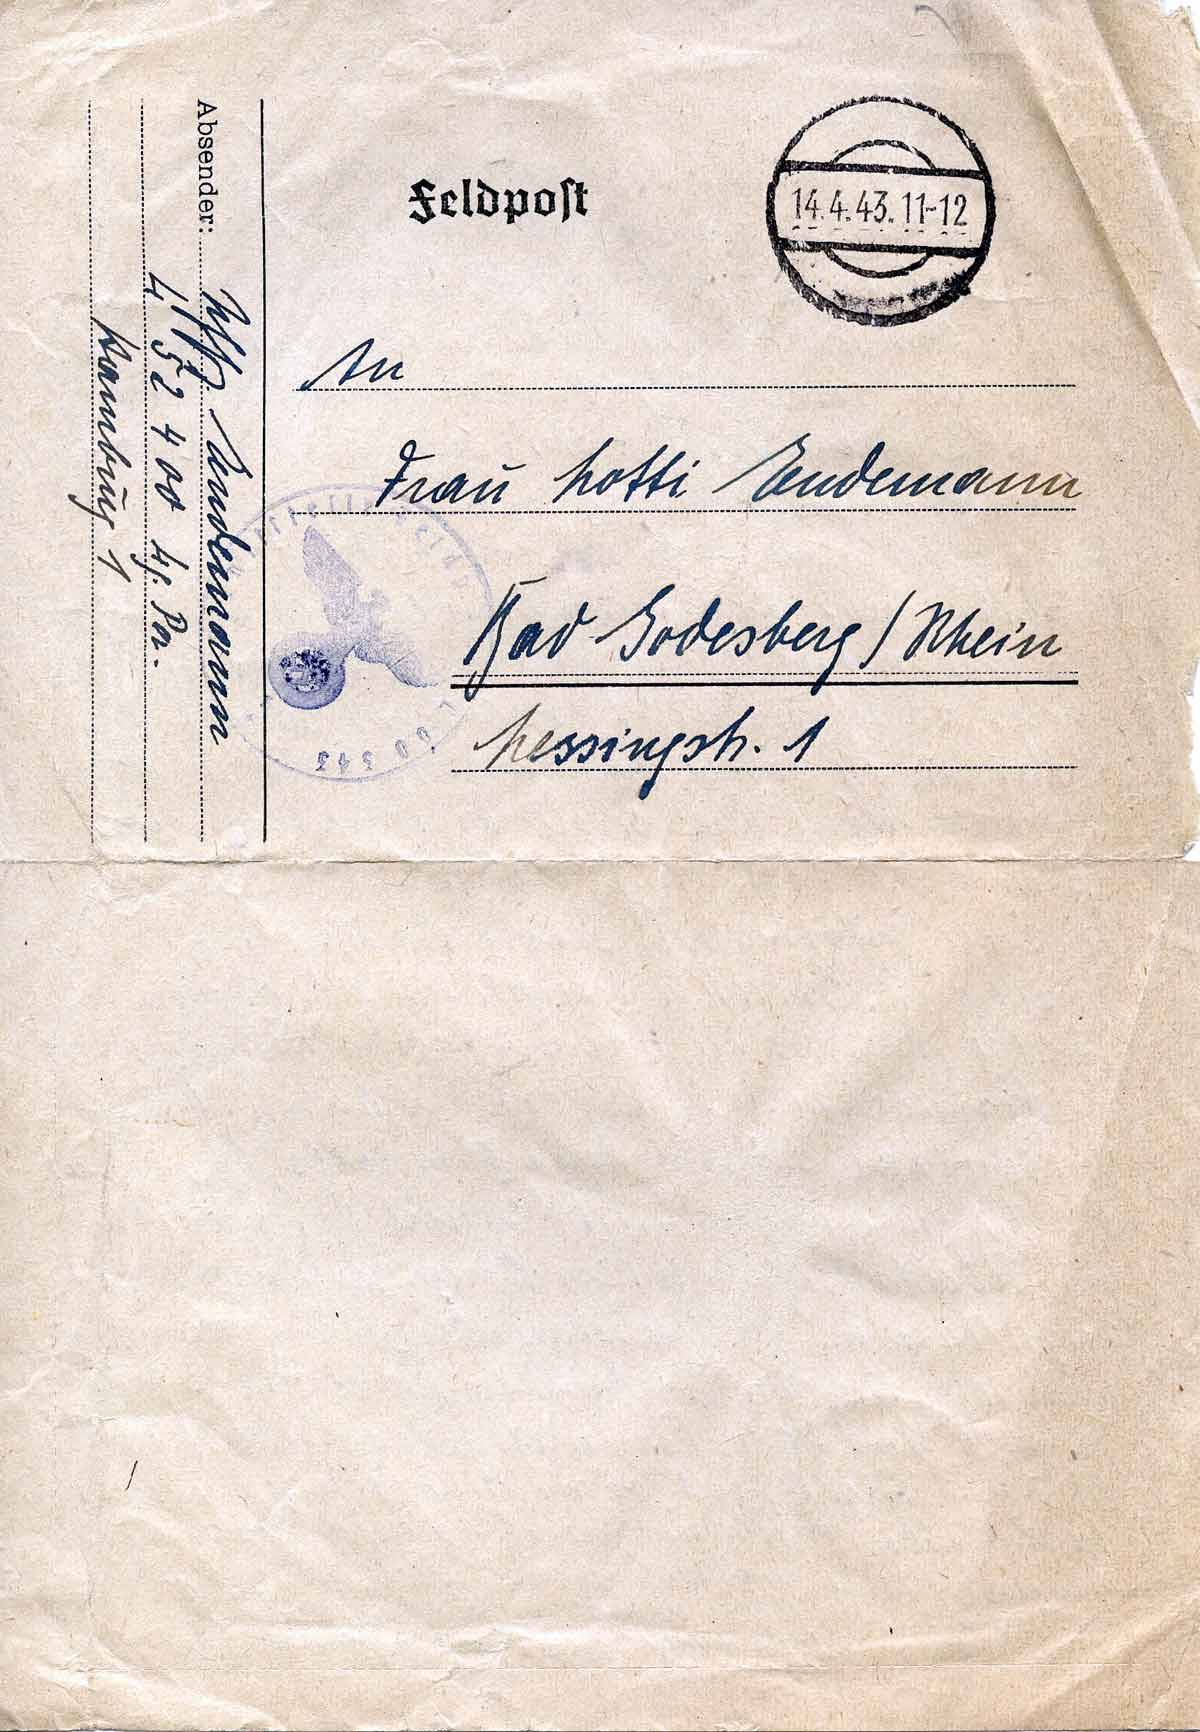 Feldpost
14.4.43.11-12
An
Frau Lotti Endemann
Bad Godesberg / Rhein
Lessingstr. 1
Absender: Uffz Endemann
L 52 400 Lg. Pa.
Hamburg 1
343